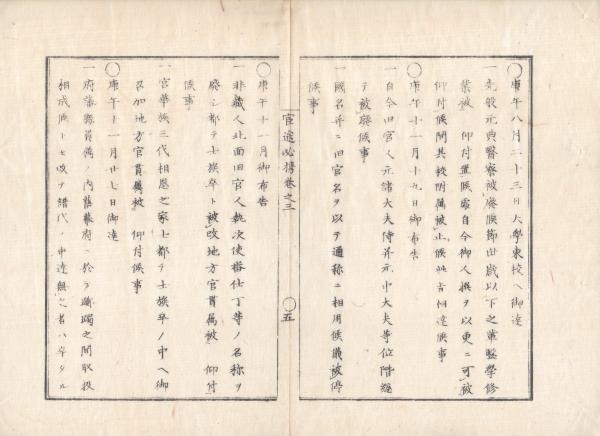 ○庚午八月二十三日大學東校ヘ御達
一先般元典醫寮被廢候節廿歳以下之輩醫學修
業被　仰付置候處自今御人撰ヲ以更ニ可被
仰付候間其校附属被止候此旨相達候事
○庚午十一月十九日御布告
一自今旧官人元諸大夫侍并元中大夫等位階總
テ被廢候事
一國名并ニ旧官名ヲ以テ通称ニ相用候儀被停
候事
官途必携巻之三
○五
○庚午十一月御布告
一非職人北面旧官人執次使番仕丁等ノ名称ヲ
廢シ都テ士族卒ト被改地方官貫属被　仰付
候事
一官華族三代相恩之家士都テ士族卒ノ中ヘ御
召加地方官貫属被　仰付候事
○庚午十一月廿七日御達
一府藩縣貫属ノ内舊幕府ニ於ヲ之間取扱
相成候トモ改テ譜代ノ申達無之者ハ卒タル